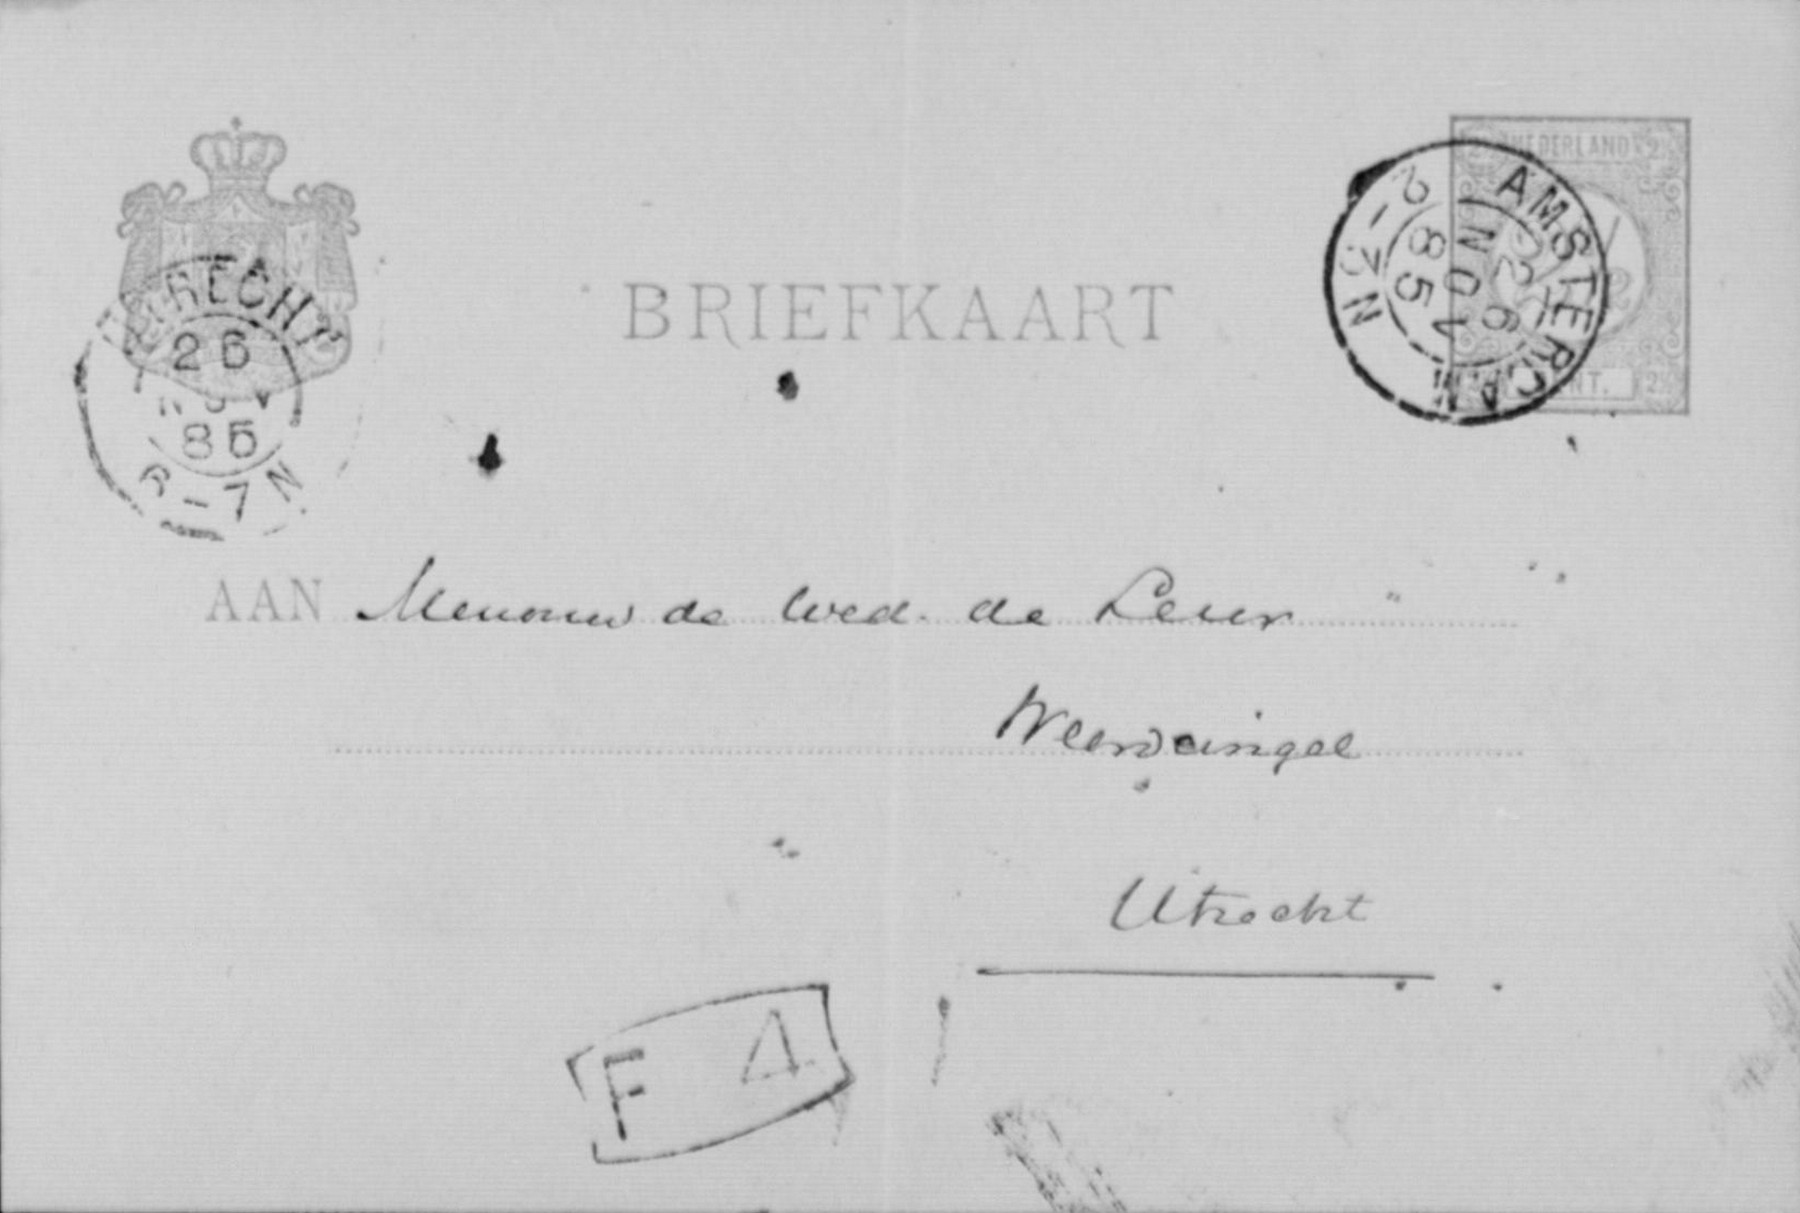 NEDERLAND
AMSTERDAM
26
NOV
85
2-3N
UTRECHT
26
NOV
85
6-7N
BRIEFKAART
AAN Mevrouw de Wed. de Leur
Weerdsingel
Utrecht
F 4